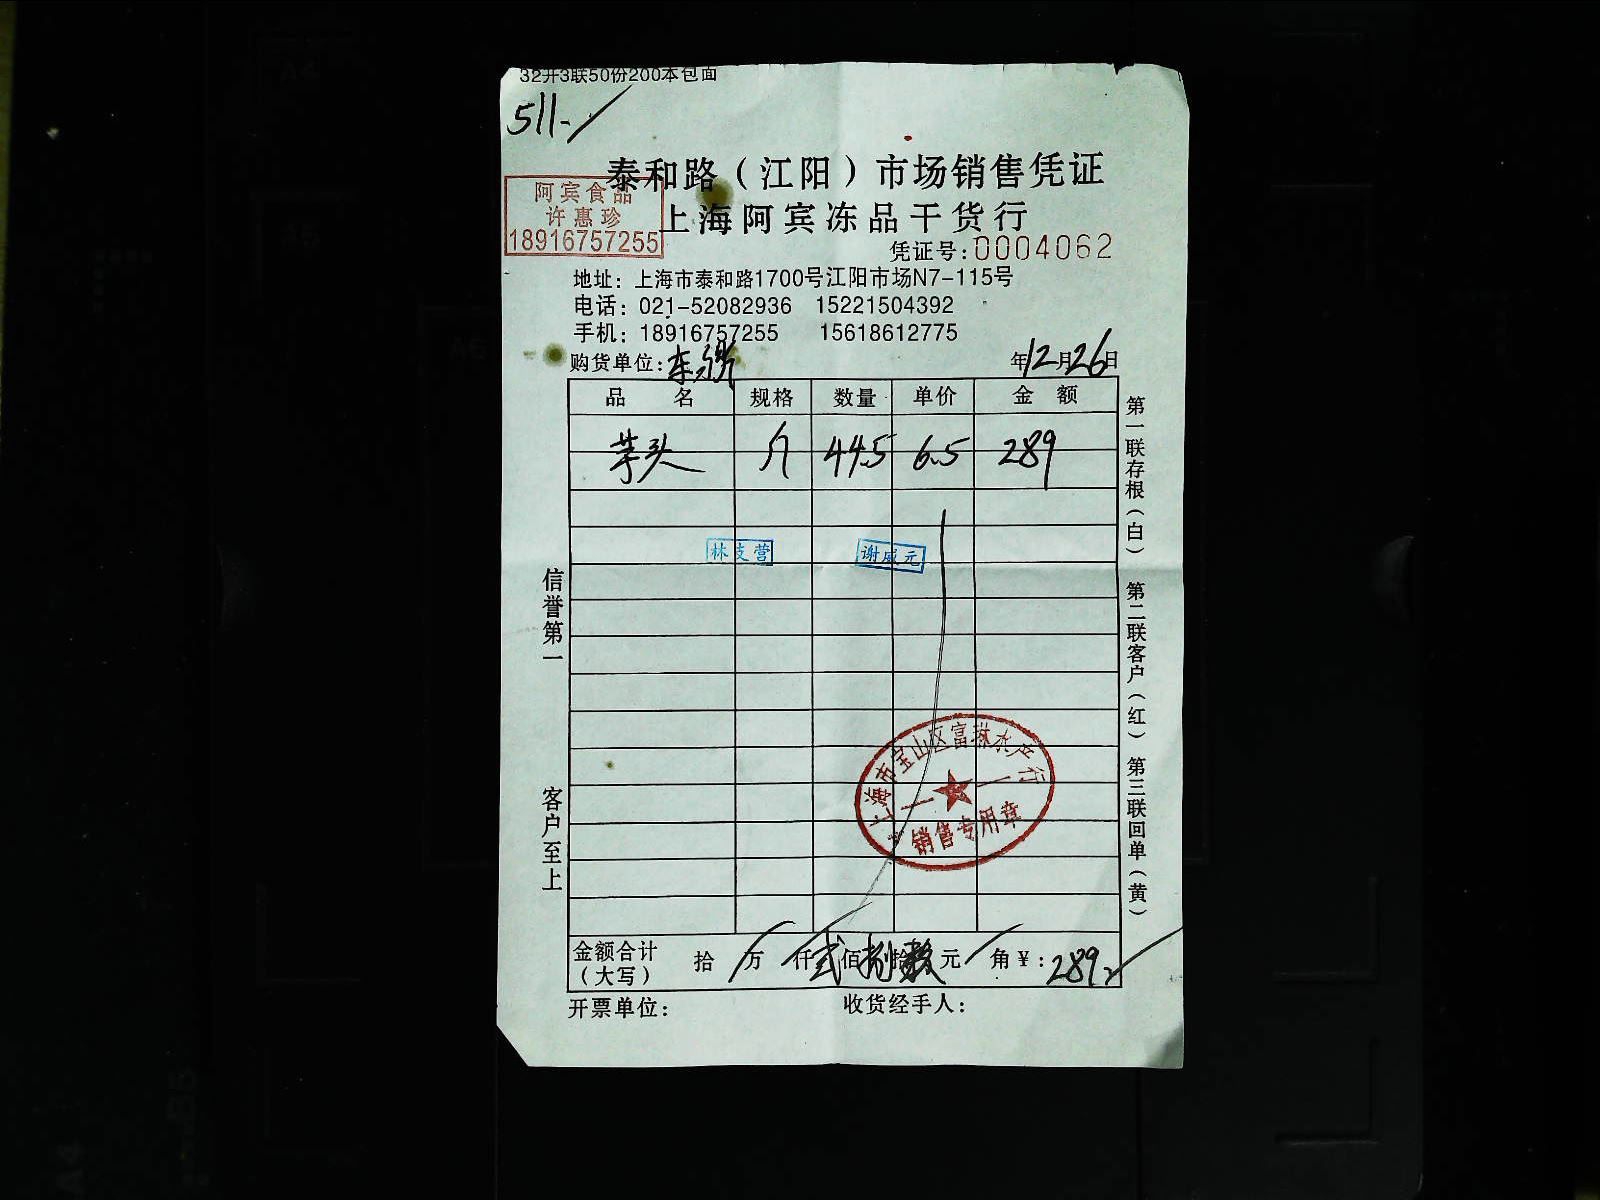 32开3联50份200本包面
511-
泰和路（江阳）市场销售凭证
阿宾食品
许惠珍
18916757255
上海阿宾冻品干货行
凭证号:0004062
地址：上海市泰和路1700号江阳市场N7-115号
电话：021-52082936 15221504392
手机：18916757255 15618612775
购货单位:
年12月26日
品 名 规格 数量 单价 金 额
芋头 斤 44.5 6.5 289
林支营 谢威元
信誉第一
客户至上
第一联存根(白) 第二联客户(红) 第三联回单(黄)
上海市宝山区富琳水产行
销售专用章
金额合计（大写） 拾 万 仟 弍 佰 捌 拾 玖 元 角 ¥:289
开票单位： 收货经手人：